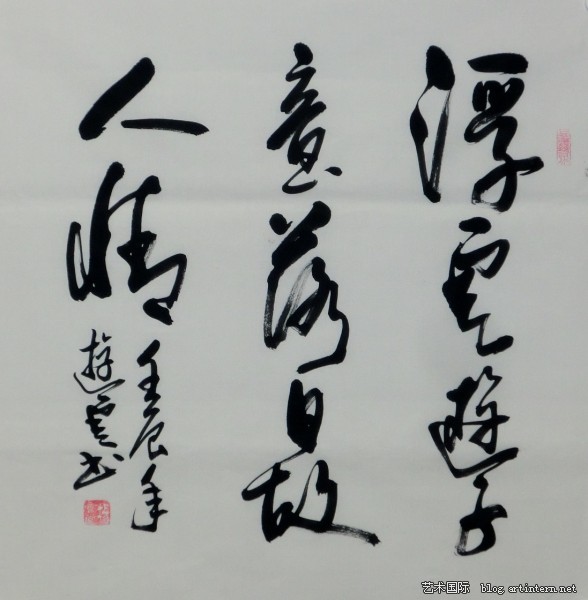 浮雲遊子
意落日故
人情
壬辰年
遊雲书
艺术国际 blog.artintern.net